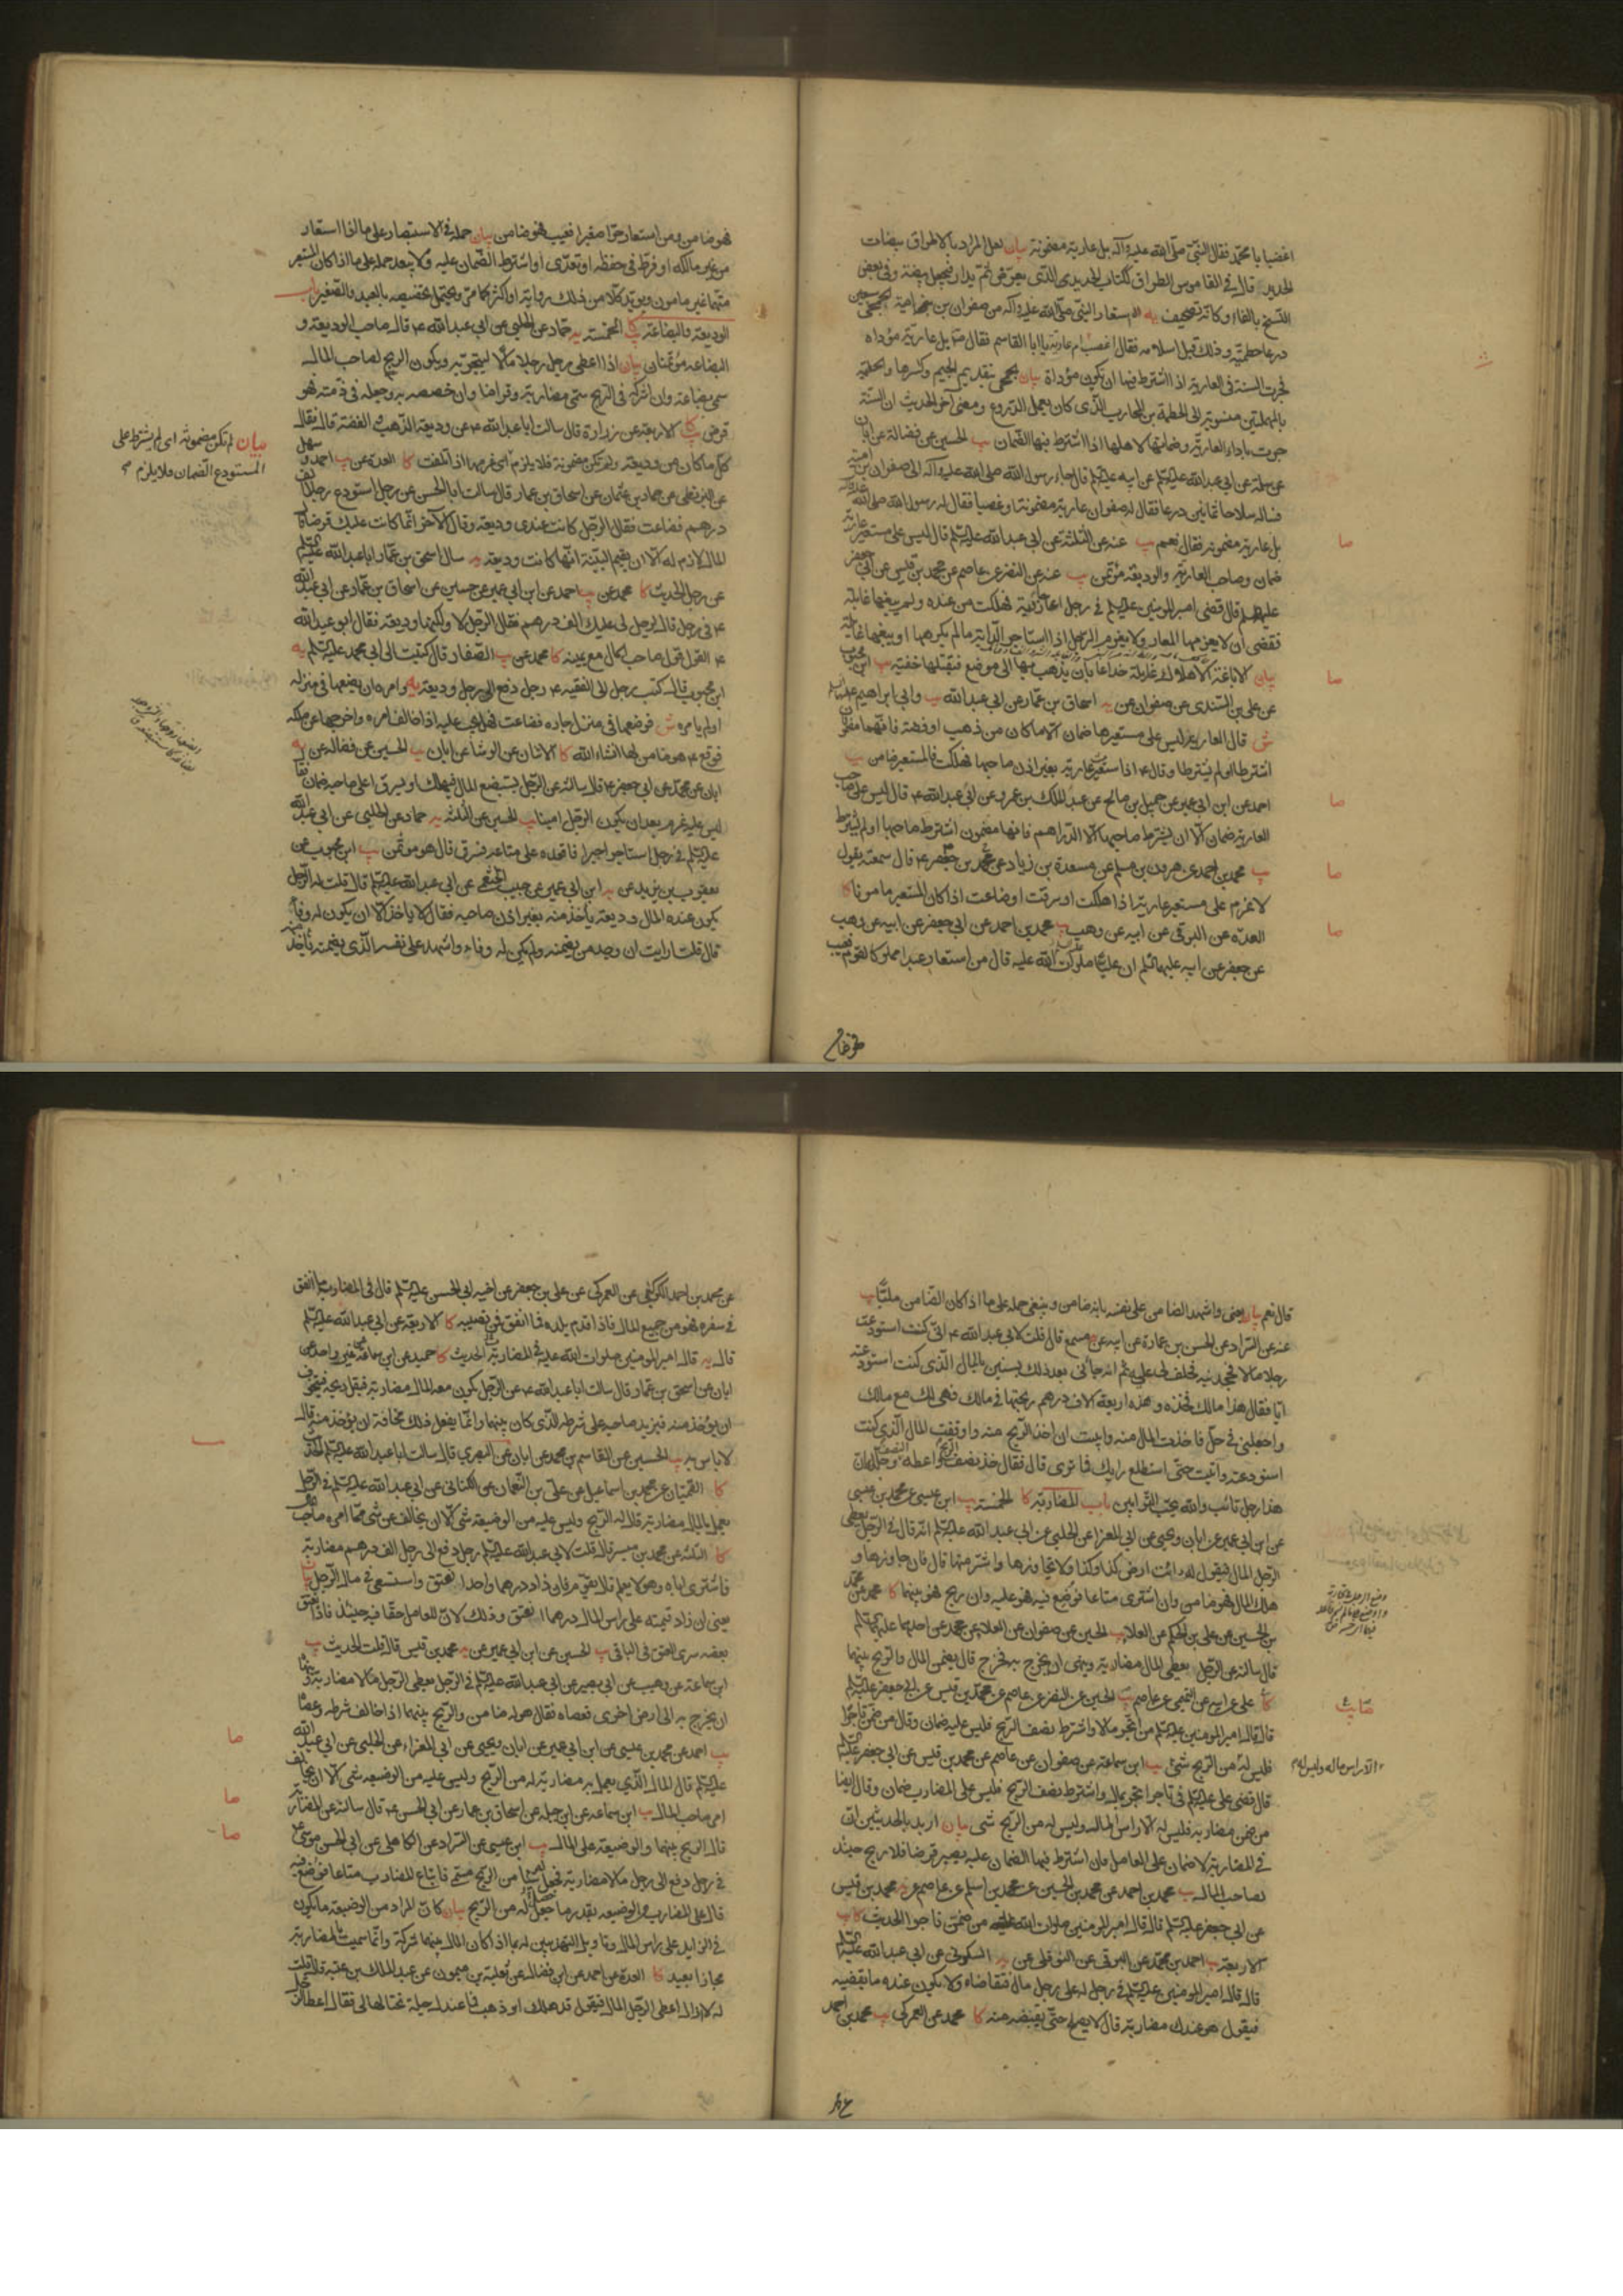 اغصبا يا محمد فقال النبي صلى الله عليه وآله بل عارية مضمونة بيان لعل المراد بالاطراق بيضات
الحديد قال في القاموس الطراق ككتاب الحديد الذي يعرض ثم يدار فيجعل بيضة وفي بعض
النسخ بالفاء وكانه تصحيف يه استعار النبي صلى الله عليه وآله من صفوان بن امية الجمحي سبعين
درعا حطمية وذلك قبل اسلامه فقال اغصب ام عارية يا ابا القاسم فقال بل عارية مؤداة
فجرت السنة في العارية اذا اشترط فيها ان تكون مؤداة بيان جمحي بتقديم الجيم وكسرها والحطمية
بالمهملتين منسوبة الى الحطمة بن محارب الذي كان يعمل الدروع ومعنى آخر الحديث ان السنة
جرت باداء العارية وضمانها لاهلها اذا اشترط فيها الضمان يب الحسين عن فضالة عن ابان
عن سلمة عن ابي عبد الله عليه السلم عن ابيه عليه السلم قال جاء رسول الله صلى الله عليه وآله الى صفوان بن امية
فساله سلاحا ثمانين درعا فقال له صفوان عارية مضمونة او غصبا فقال له رسول الله صلى الله عليه وآله
بل عارية مضمونة فقال نعم يب عنه عن الثلثة عن ابي عبد الله عليه السلم قال ليس على مستعير عارية
ضمان وصاحب العارية والوديعة مؤتمن يب عنه عن النضر عن عاصم عن محمد بن قيس عن ابي جعفر
عليه السلم قال قضى امير المومنين عليه السلم في رجل اعار جارية فهلكت من عنده ولم يبغها غائلة
فقضى ان لا يغرمها المعار ولا يغرم الرجل اذا استاجر الدابة ما لم يكرهها او يبغها غائلة
بيان
عن علي بن السندي عن صفوان عن يه اسحاق بن عمار عن ابي عبد الله يب وابي ابراهيم عليهما السلم
ش قال العارية ليس على مستعيرها ضمان الا ما كان من ذهب او فضة فانهما مضمونان
اشترطا او لم يشترطا وقال ع اذا استعير عارية بغير اذن صاحبها فهلكت فالمستعير ضامن يب
احمد عن ابن ابي عمير عن جميل بن صالح عن عبد الملك بن عمرو عن ابي عبد الله ع قال ليس على صاحب
العارية ضمان الا ان يشترط صاحبها الا الدراهم فانها مضمون اشترط صاحبها او لم يشترط
يب محمد بن احمد عن هرون بن مسلم عن مسعدة بن زياد عن جعفر بن محمد ع قال سمعته يقول
لا غرم على مستعير عارية اذا هلكت او سرقت او ضاعت اذا كان المستعير مامونا كا
العدة عن البرقي عن ابيه عن وهب يب محمد بن احمد عن ابي جعفر عن ابيه عن وهب
عن جعفر عن ابيه عليهما السلم ان عليا صلوات الله عليه قال من استعار عبدا مملوكا لقوم فعيب
صا
صا
صا
صا
صا
فهو ضامن
فهو ضامن ومن استعار حرا صغيرا فعيب فهو ضامن بيان حمله في الاستبصار على ما اذا استعار
من غير مالكه او فرط في حفظه او تعدى او اشترط الضمان عليه ولا يبعد حمله على ما اذا كان المستعير
متهما غير مامون ويؤيد كلا من ذلك رواية او اكثر كما مر ويحتمل تخصيصه بالعبد والصغير باب
الوديعة والبضاعة كا الخمسة يه حماد عن الحلبي عن ابي عبد الله ع قال صاحب الوديعة و
البضاعة مؤتمنان بيان اذا اعطى رجل رجلا مالا ليتجر به ويكون الربح لصاحب المال
سمي بضاعة وان اشركه في الربح سمي مضاربة وقراضا وان خصصه به وجعله في ذمته فهو
قرض كا يب الاربعة عن زرارة قال سالت ابا عبد الله ع عن وديعة الذهب والفضة قال فقال
كل ما كان من وديعة ولم تكن مضمونة فلا يلزم اي غرمها اذا تلفت كا العدة عن يب احمد و سهل
عن البزنطي عن حماد بن عثمان عن اسحاق بن عمار قال سالت ابا الحسن عن رجل استودع رجلا الف
درهم فضاعت فقال الرجل كانت عندي وديعة وقال الآخر انما كانت عليك قرضا قال
المال لازم له الا ان يقيم البينة انها كانت وديعة يه سال اسحق بن عمار ابا عبد الله عليه السلم
عن رجل الحديث كا محمد عن يب احمد عن ابن ابي عمير عن حسين عن اسحاق بن عمار عن ابي عبد الله
ع في رجل قال لرجل لي عليك الف درهم فقال الرجل لا ولكنها وديعة فقال ابو عبد الله
ع القول قول صاحب المال مع يمينه كا محمد عن يب الصفار قال كتبت الى ابي محمد عليه السلم يه
ابن محبوب قال كتب رجل الى الفقيه ع رجل دفع الى رجل وديعة وامره ان يضعها في منزله
او لم يامره ش فوضعها في منزل جاره فضاعت فهل يجب عليه اذا خالف امره واخرجها عن ملكه
فوقع ع هو ضامن لها انشاء الله كا الاثنان عن الوشا عن ابان يب الحسين عن فضالة عن يه
ابان عن محمد عن ابي جعفر ع قال سالته عن الرجل يستبضع المال فيهلك او يسرق اعلى صاحبه ضمان فقال
ليس عليه غرم بعد ان يكون الرجل امينا يب الحسين عن الثلثة يه حماد عن الحلبي عن ابي عبد الله
عليه السلم في رجل استاجر اجيرا فاقعده على متاعه فسرق قال هو مؤتمن يب ابن محبوب عن
يعقوب بن يزيد عن يه ابن ابي عمير عن حبيب الخثعمي عن ابي عبد الله عليه السلم قال قلت له الرجل
يكون عنده المال وديعة ياخذ منه بغير اذن صاحبه فقال لا ياخذ الا ان يكون له وفاء
قال قلت ارايت ان وجد من يضمنه ولم يكن له وفاء واشهد على نفسه الذي يضمنه ياخذ منه
بيان لم تكن مضمونة اي لم يشترط على
المستودع الضمان فلا يلزم
قال نعم بيان يعني واشهد الضامن على نفسه بانه ضامن وينبغي حمله على ما اذا كان الضامن مليا يب
عنه عن السراد عن الحسن بن عمارة عن ابيه عن مسمع قال قلت لابي عبد الله ع اني كنت استودعت
رجلا مالا فجحدنيه فحلف لي عليه ثم انه جاءني بعد ذلك بسنين بالمال الذي كنت استودعته
اياه فقال هذا مالك فخذه وهذه اربعة آلاف درهم ربحتها في مالك فهي لك مع مالك
واجعلني في حل فاخذت المال منه وابيت ان اخذ الربح منه واوقفت المال الذي كنت
استودعته واتيت حتى استطلع رايك فما ترى قال فقال خذ نصف الربح واعطه النصف وحلله ان
هذا رجل تائب والله يحب التوابين باب المضاربة كا الخمسة يب ابن عيسى عن محمد بن عيسى
عن ابن ابي عمير عن ابان ويحيى عن ابي المغرا عن الحلبي عن ابي عبد الله عليه السلم انه قال في الرجل يعطي
الرجل المال فيقول له ائت ارض كذا وكذا ولا تجاوزها واشتر منها قال فان جاوزها و
هلك المال فهو ضامن وان اشترى متاعا فوضع فيه فهو عليه وان ربح فهو بينهما كا محمد عن محمد
بن الحسين عن علي بن الحكم عن العلا يب الحسين عن صفوان عن العلا عن محمد عن احدهما عليهما السلم
قال سالته عن الرجل يعطي المال مضاربة وينهى ان يخرج به فخرج قال يضمن المال والربح بينهما
كا علي عن ابيه عن التميمي عن عاصم يب الحسين عن النضر عن عاصم عن محمد بن قيس عن ابي جعفر عليه السلم
قال قال امير المومنين عليه السلم من اتجر مالا واشترط نصف الربح فليس عليه ضمان وقال من ضمن تاجرا
فليس له من الربح شئ يب ابن سماعة عن صفوان عن عاصم عن محمد بن قيس عن ابي جعفر عليه السلم
قال قضى علي عليه السلم في تاجر اتجر بمال واشترط نصف الربح فليس على المضارب ضمان وقال ايضا
من ضمن مضاربه فليس له الا راس المال وليس له من الربح شئ بيان اريد بالحديثين ان
في المضاربة لا ضمان على العامل فان اشترط فيها الضمان عليه يصير قرضا فلا ربح حينئذ
لصاحب المال يب محمد بن احمد عن محمد بن الحسين عن محمد بن اسلم عن عاصم عن يه محمد بن قيس
عن ابي جعفر عليه السلم قال قال امير المومنين صلوات الله عليه من ضمن تاجرا الحديث كا يب
الاربعة يب احمد بن محمد عن البرقي عن النوفلي عن يه السكوني عن ابي عبد الله عليه السلم
قال قال امير المومنين عليه السلم في رجل له على رجل مال فتقاضاه ولا يكون عنده ما يقضيه
فيقول هو عندك مضاربة قال لا يصلح حتى يقبضه منه كا محمد عن العمركي يب محمد بن احمد
الا راس ماله وليس له
عن محمد بن احمد الكوكبي عن العمركي عن علي بن جعفر عن اخيه ابي الحسن عليه السلم قال في المضارب ما انفق
في سفره فهو من جميع المال فاذا قدم بلده فما انفق فمن نصيبه كا الاربعة عن ابي عبد الله عليه السلم
قال يه قال امير المومنين صلوات الله عليه في المضاربة الحديث كا حميد عن ابن سماعة عن غير واحد عن
ابان عن اسحق بن عمار قال سالت ابا عبد الله ع عن الرجل يكون معه المال مضاربة فيقل ربحه فيتخوف
ان يؤخذ منه فيزيد صاحبه على شرطه الذي كان بينهما وانما يفعل ذلك مخافة ان يؤخذ منه قال
لا باس به يب الحسين عن القاسم بن محمد عن ابان عن البصري قال سالت ابا عبد الله عليه السلم الحديث
كا القميان عن محمد بن اسماعيل عن علي بن النعمان عن الكناني عن ابي عبد الله عليه السلم في الرجل
يعمل بالمال مضاربة قال له الربح وليس عليه من الوضيعة شئ الا ان يخالف عن شئ مما امره صاحب
كا الثلثة عن محمد بن ميسر قال قلت لابي عبد الله عليه السلم رجل دفع الى رجل الف درهم مضاربة
فاشترى اباه وهو لا يعلم قال يقوم فان زاد درهما واحدا اعتق واستسعي في مال الرجل بيان
يعني ان زاد قيمته على راس المال درهما انعتق وذلك لان للعامل حقا فيه حينئذ فاذا انعتق
بعضه سرى العتق في الباقي يب الحسين عن ابن ابي عمير عن يه محمد بن قيس قال قلت الحديث يب
ابن سماعة عن وهيب عن ابي بصير عن ابي عبد الله عليه السلم في الرجل يعطي الرجل مالا مضاربة وينهاه
ان يخرج به الى ارض اخرى فعصاه فقال هو له ضامن والربح بينهما اذا خالف شرطه وعصاه
يب احمد عن محمد بن عيسى عن ابن ابي عمير عن ابان ويحيى عن ابي المغراء عن الحلبي عن ابي عبد الله
عليه السلم قال المال الذي يعمل به مضاربة له من الربح وليس عليه من الوضيعة شئ الا ان يخالف
امر صاحب المال يب ابن سماعة عن ابن جبلة عن اسحاق بن عمار عن ابي الحسن ع قال سالته عن المضاربة
قال الربح بينهما والوضيعة على المال يب ابن عيسى عن السراد عن الكاهلي عن ابي الحسن موسى ع
في رجل دفع الى رجل مالا مضاربة فجعل له شيئا من الربح مسمى فابتاع المضارب متاعا فوضع فيه
قال على المضارب من الوضيعة بقدر ما جعل له من الربح بيان كان المراد من الوضيعة ما يكون
في الزايد على راس المال وتاويل التهذيبين له بما اذا كان المال بينهما شركة وانما سميت المضاربة
مجازا بعيد كا العدة عن احمد عن ابن فضال عن ثعلبة بن ميمون عن عبد الملك بن عتبة قال قلت
له لا ازال اعطي الرجل المال فيقول قد هلك او ذهب فما عندك حيلة تحتالها لي فقال اعط الرجل
صا
صا
صا